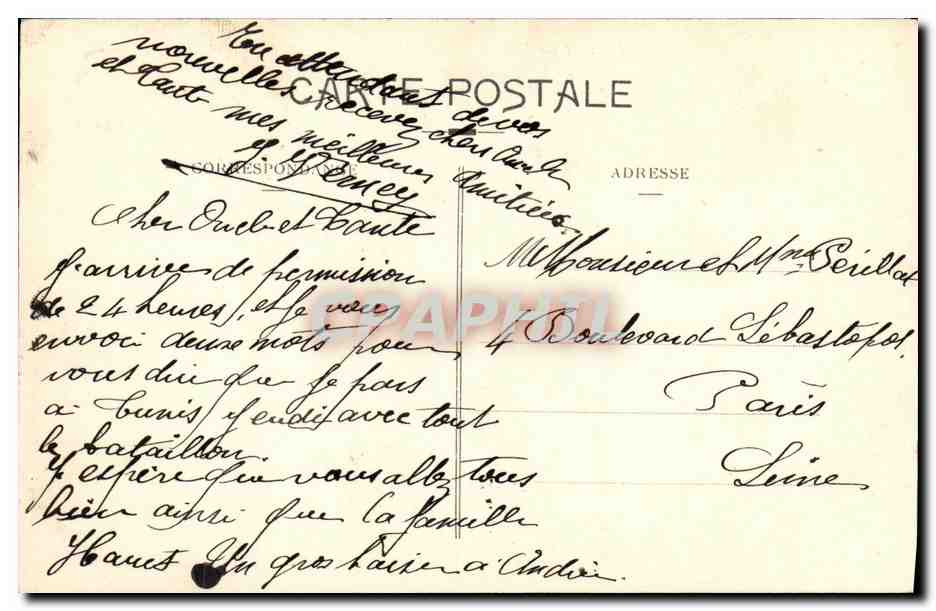 CARTE POSTALE
CORRESPONDANCE
ADRESSE
En attendant de vos
nouvelles recevez cher Oncle
et Tante mes meilleures
Amitiées.
Cher Oncle et Tante
J'arrive de permission
de 24 heures, et je vous
envoi deuxe mots pour
vous dire que je pars
à Tunis jeudi avec tout
le bataillon
J'espère que vous allez tous
bien ainsi que la famille
Un gros baiser a Andrée.
Monsieur et Mme Périllat
4 Boulevard Sébastopol,
Paris
Seine
CPAPHIL